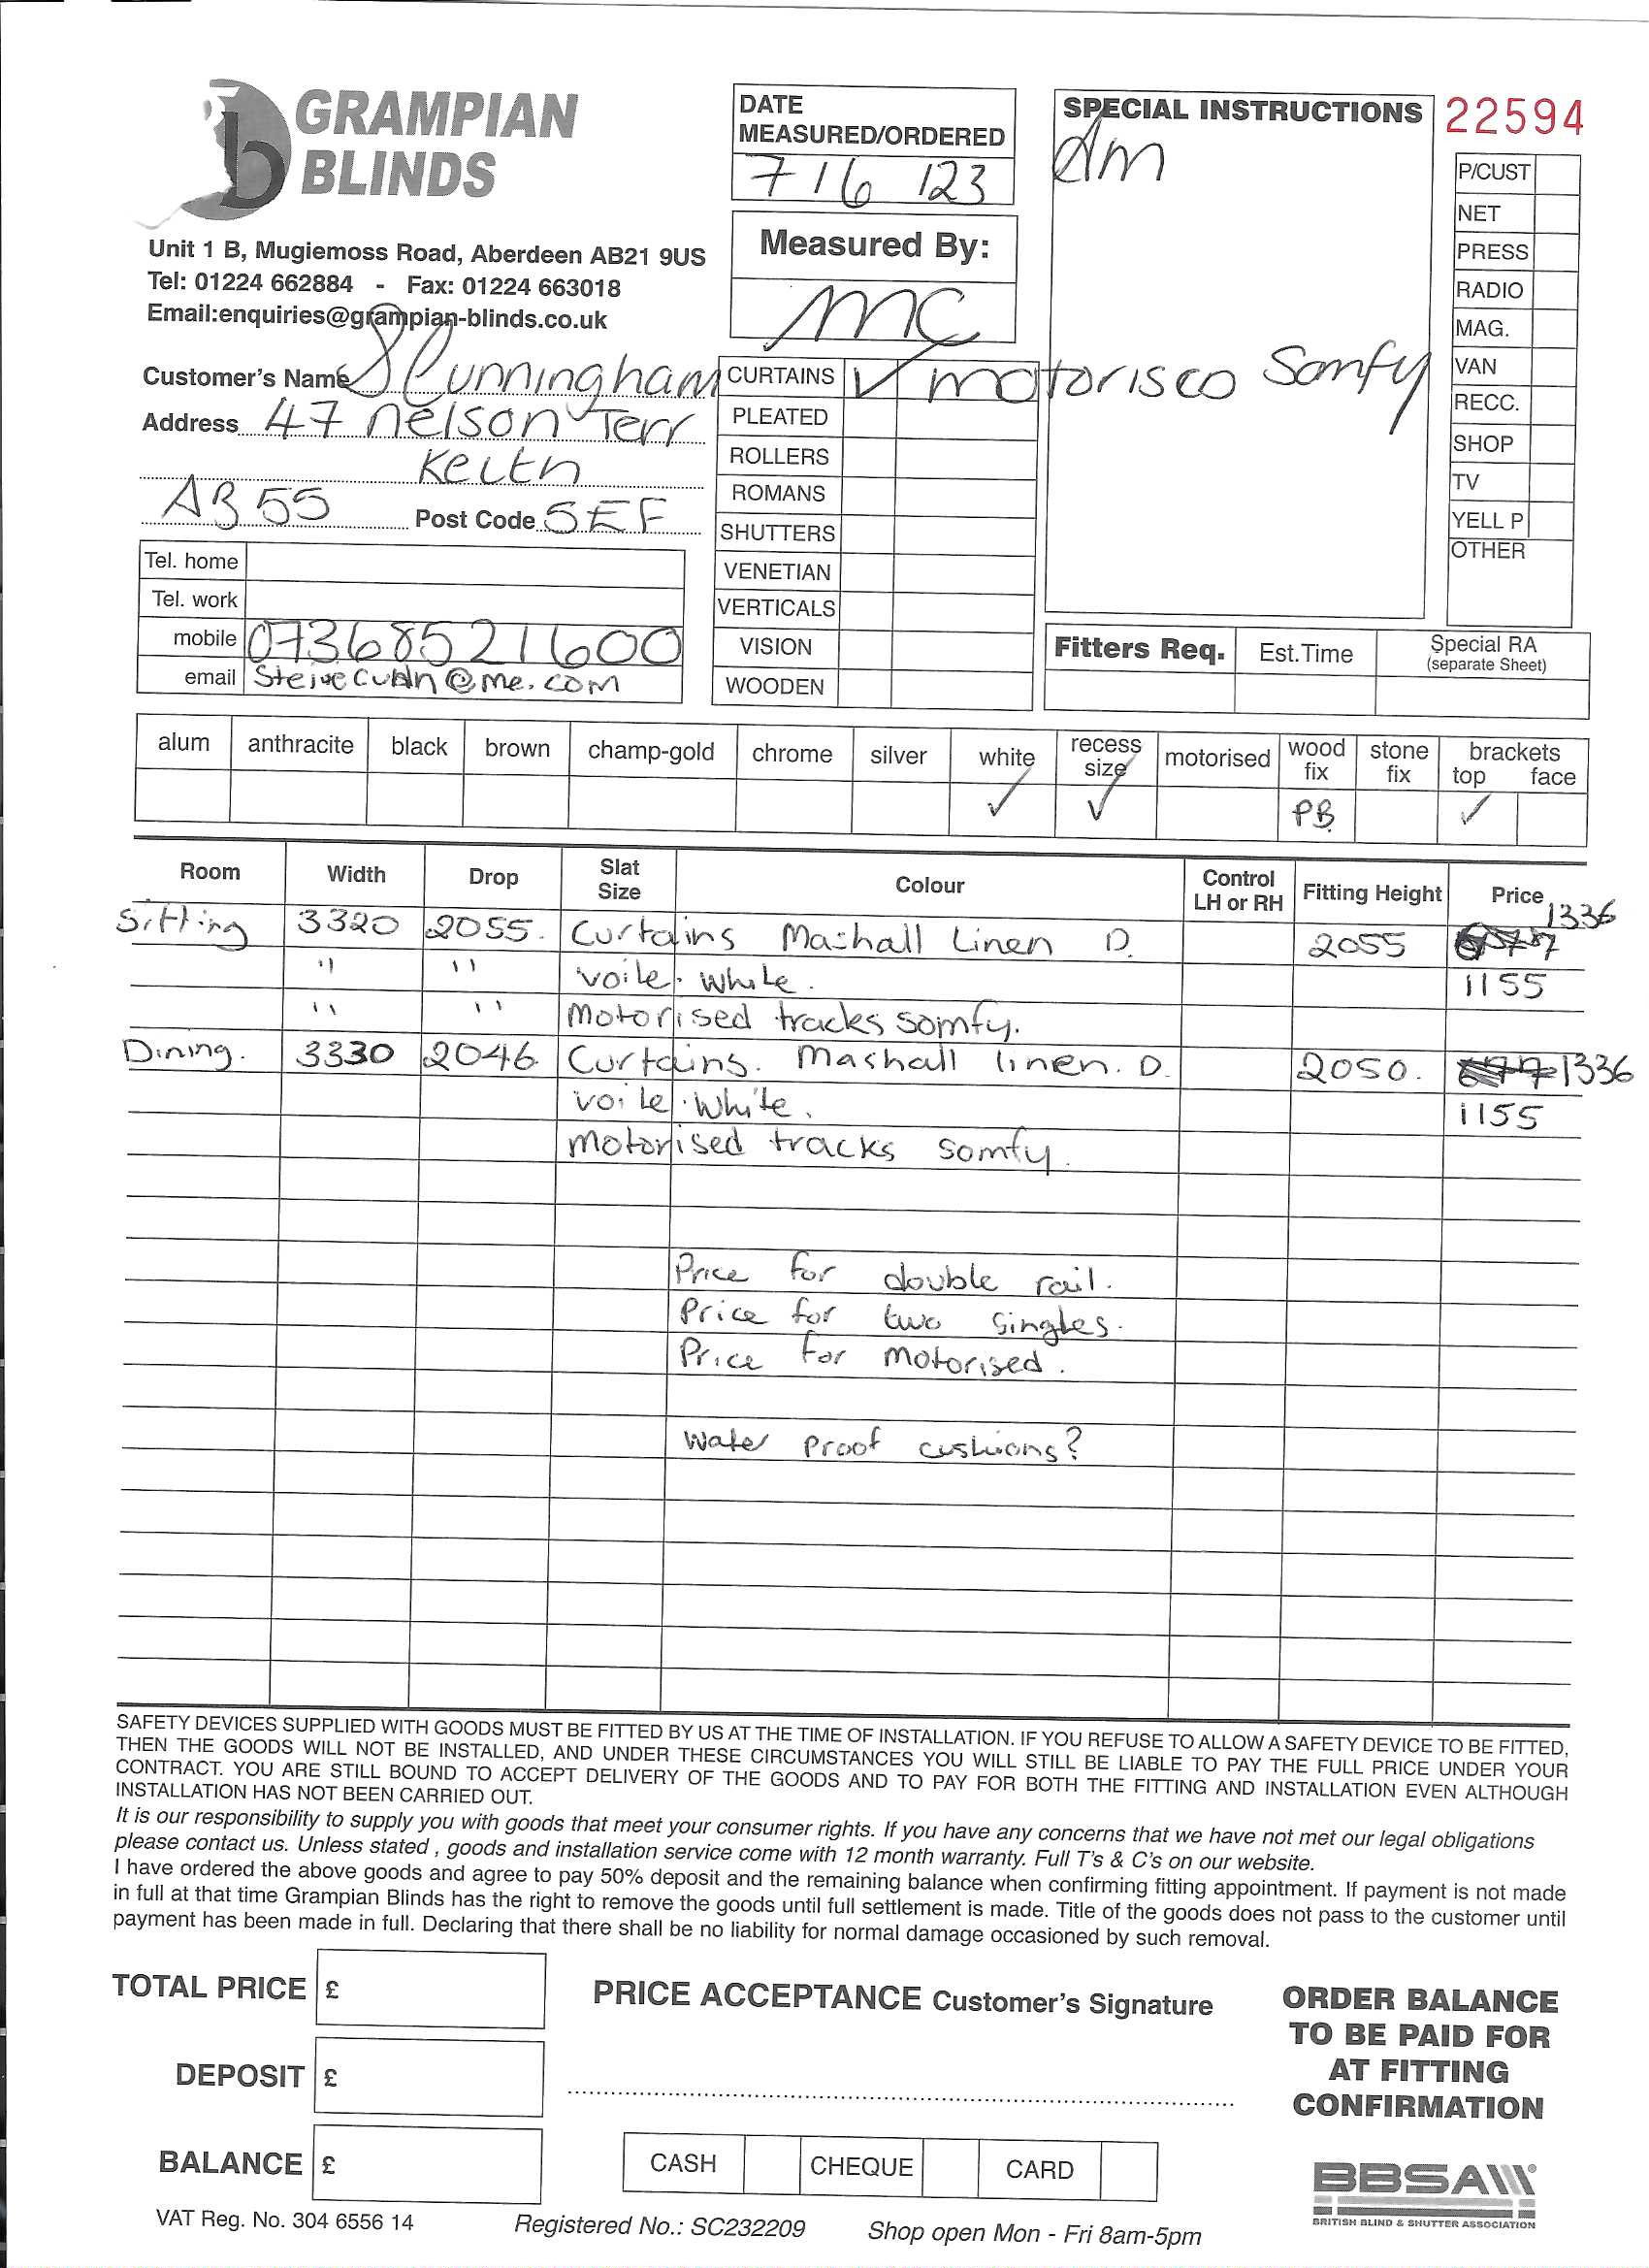 GRAMPIAN
BLINDS
Unit 1 B, Mugiemoss Road, Aberdeen AB21 9US
Tel: 01224 662884 - Fax: 01224 663018
Email:enquiries@grampian-blinds.co.uk
DATE
MEASURED/ORDERED
7/6/23
Measured By:
MC
SPECIAL INSTRUCTIONS
Am
22594
P/CUST
NET
PRESS
RADIO
MAG.
VAN
RECC.
SHOP
TV
YELL P
OTHER
Customer's Name S Cunningham
Address 47 Nelson Terr
Keith
AB55 Post Code 5EF
Tel. home
Tel. work
mobile 07368521600
email @me.com
CURTAINS ✓ Somfy
PLEATED
ROLLERS
ROMANS
SHUTTERS
VENETIAN
VERTICALS
VISION
WOODEN
Fitters Req. Est.Time Special RA
(separate Sheet)
alum anthracite black brown champ-gold chrome silver white recess size motorised wood fix stone fix brackets top face
✓ ✓ PB ✓
Room Width Drop Slat Size Colour Control LH or RH Fitting Height Price
Sitting 3320 2055. Curtains Mashall Linen D. 2055 1336
" " voile. white. 1155
" " Motorised tracks somfy.
Dining. 3330 2046 Curtains. Mashall linen. D. 2050. 1336
voile. white. 1155
motorised tracks somfy.
Price for double rail.
Price for two singles.
Price for motorised.
Water proof cushions?
SAFETY DEVICES SUPPLIED WITH GOODS MUST BE FITTED BY US AT THE TIME OF INSTALLATION. IF YOU REFUSE TO ALLOW A SAFETY DEVICE TO BE FITTED,
THEN THE GOODS WILL NOT BE INSTALLED, AND UNDER THESE CIRCUMSTANCES YOU WILL STILL BE LIABLE TO PAY THE FULL PRICE UNDER YOUR
CONTRACT. YOU ARE STILL BOUND TO ACCEPT DELIVERY OF THE GOODS AND TO PAY FOR BOTH THE FITTING AND INSTALLATION EVEN ALTHOUGH
INSTALLATION HAS NOT BEEN CARRIED OUT.
It is our responsibility to supply you with goods that meet your consumer rights. If you have any concerns that we have not met our legal obligations
please contact us. Unless stated , goods and installation service come with 12 month warranty. Full T's & C's on our website.
I have ordered the above goods and agree to pay 50% deposit and the remaining balance when confirming fitting appointment. If payment is not made
in full at that time Grampian Blinds has the right to remove the goods until full settlement is made. Title of the goods does not pass to the customer until
payment has been made in full. Declaring that there shall be no liability for normal damage occasioned by such removal.
TOTAL PRICE £
PRICE ACCEPTANCE Customer's Signature
ORDER BALANCE
TO BE PAID FOR
AT FITTING
CONFIRMATION
DEPOSIT £
BALANCE £
CASH CHEQUE CARD
BBSA
BRITISH BLIND & SHUTTER ASSOCIATION
VAT Reg. No. 304 6556 14
Registered No.: SC232209
Shop open Mon - Fri 8am-5pm